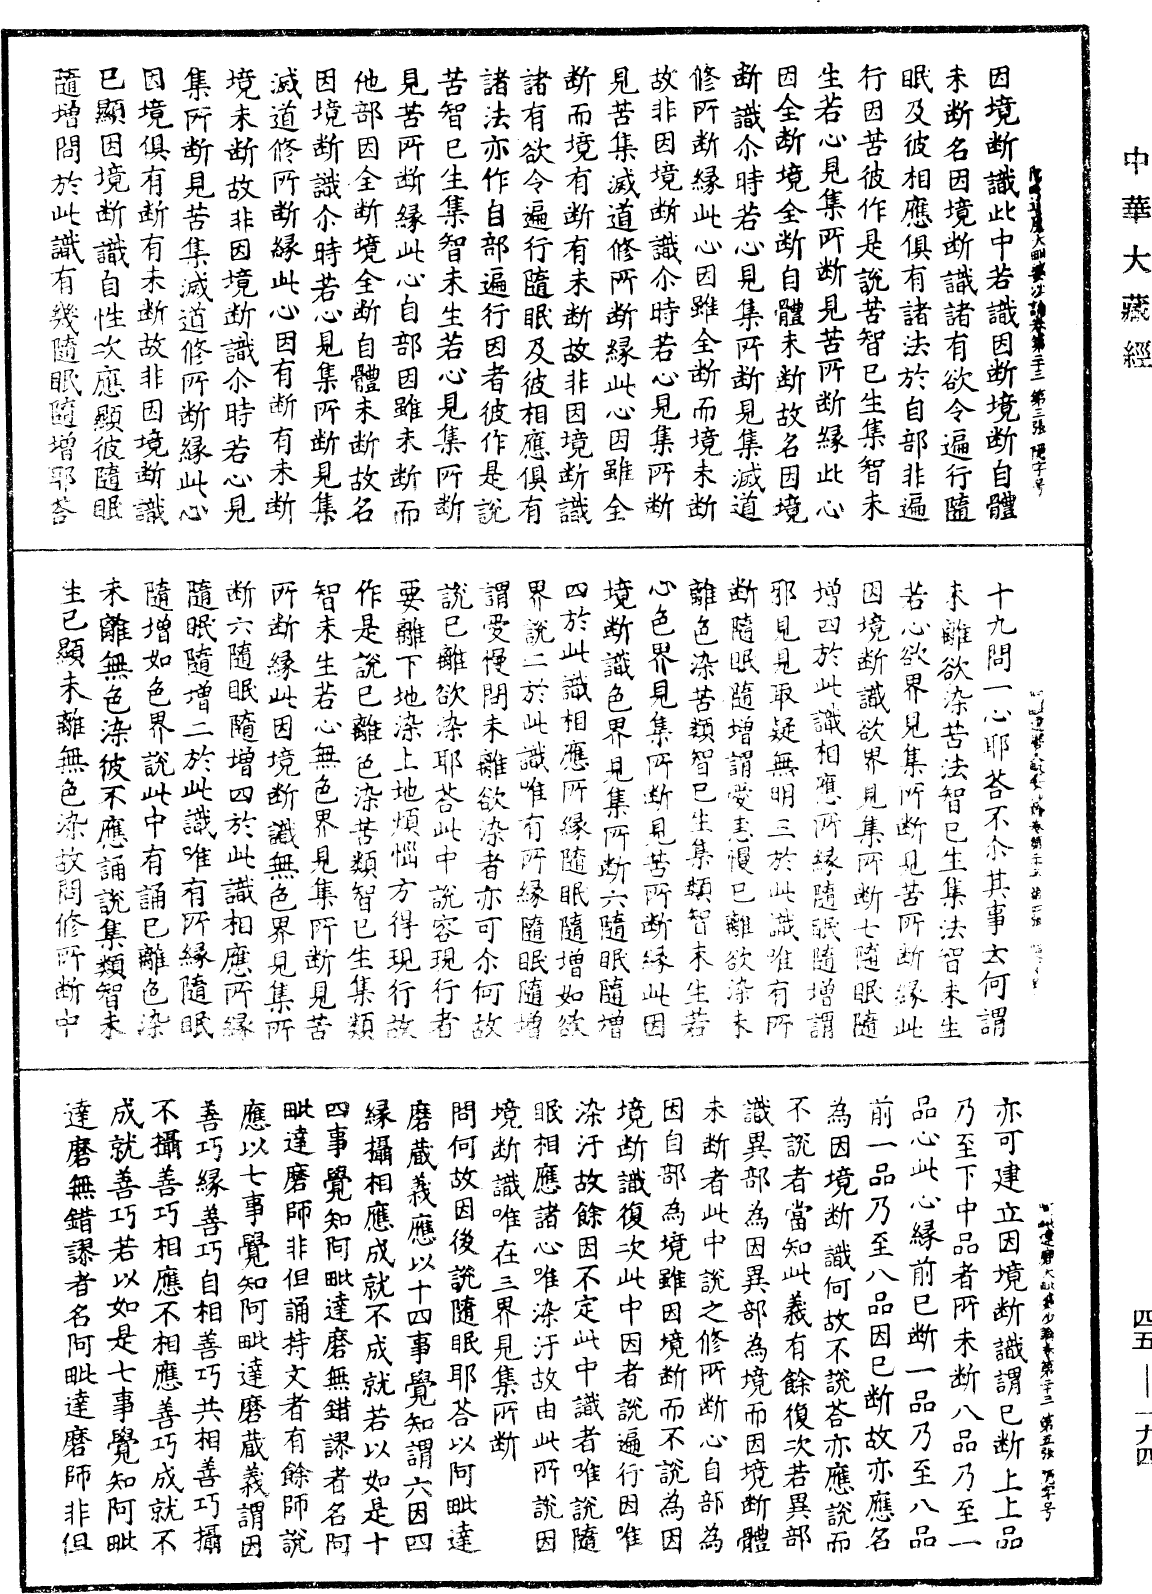 中華大藏經
四五—一九四
因境断識此中若識因断境断自體
未断名因境断識諸有欲令遍行隨
眠及彼相應俱有諸法於自部非遍
行因苦彼作是說苦智已生集智未
生若心見集所断見苦所断緣此心
因全断境全断自體未断故名因境
断識尒時若心見集所断見集滅道
修所断緣此心因雖全断而境未断
故非因境断識尒時若心見集所断
見苦集滅道修所断緣此心因雖全
断而境有断有未断故非因境断識
諸有欲令遍行隨眠及彼相應俱有
諸法亦作自部遍行因者彼作是說
苦智已生集智未生若心見集所断
見苦所断緣此心自部因雖未断而
他部因全断境全断自體未断故名
因境断識尒時若心見集所断見集
滅道修所断緣此心因有断有未断
境未断故非因境断識尒時若心見
集所断見苦集滅道修所断緣此心
因境俱有断有未断故非因境断識
已顯因境断識自性次應顯彼隨眠
隨增問於此識有幾隨眠隨增耶荅
十九問一心耶荅不尒其事云何謂
未離欲染苦法智已生集法智未生
若心欲界見集所断見苦所断緣此
因境断識欲界見集所断七隨眠隨
增四於此識相應所緣隨眠隨增謂
邪見見取疑無明三於此識唯有所
断隨眠隨增謂愛恚慢已離欲染未
離色染苦類智已生集類智未生若
心色界見集所断見苦所断緣此因
境断識色界見集所断六隨眠隨增
四於此識相應所緣隨眠隨增如欲
界說二於此識唯有所緣隨眠隨增
謂愛慢問未離欲染者亦可尒何故
說已離欲染耶荅此中說容現行者
要離下地染上地煩惱方得現行故
作是說已離色染苦類智已生集類
智未生若心無色界見集所断見苦
所断緣此因境断識無色界見集所
断六隨眠隨增四於此識相應所緣
隨眠隨增二於此識唯有所緣隨眠
隨增如色界說此中有誦已離色染
未離無色染彼不應誦說集類智未
生已顯未離無色染故問修所断中
亦可建立因境断識謂已断上上品
乃至下中品者所未断八品乃至一
品心此心緣前已断一品乃至八品
前一品乃至八品因已断故亦應名
為因境断識何故不說荅亦應說而
不說者當知此義有餘復次若異部
識異部為因異部為境而因境断體
未断者此中說之修所断心自部為
因自部為境雖因境断而不說為因
境断識復次此中因者說遍行因唯
染汙故餘因不定此中識者唯說隨
眠相應諸心唯染汙故由此所說因
境断識唯在三界見集所断
問何故因後說隨眠耶荅以阿毗達
磨蔵義應以十四事覺知謂六因四
緣攝相應成就不成就若以如是十
四事覺知阿毗達磨無錯謬者名阿
毗達磨師非但誦持文者有餘師說
應以七事覺知阿毗達磨蔵義謂因
善巧緣善巧自相善巧共相善巧攝
不攝善巧相應不相應善巧成就不
成就善巧若以如是七事覺知阿毗
達磨無錯謬者名阿毗達磨師非但